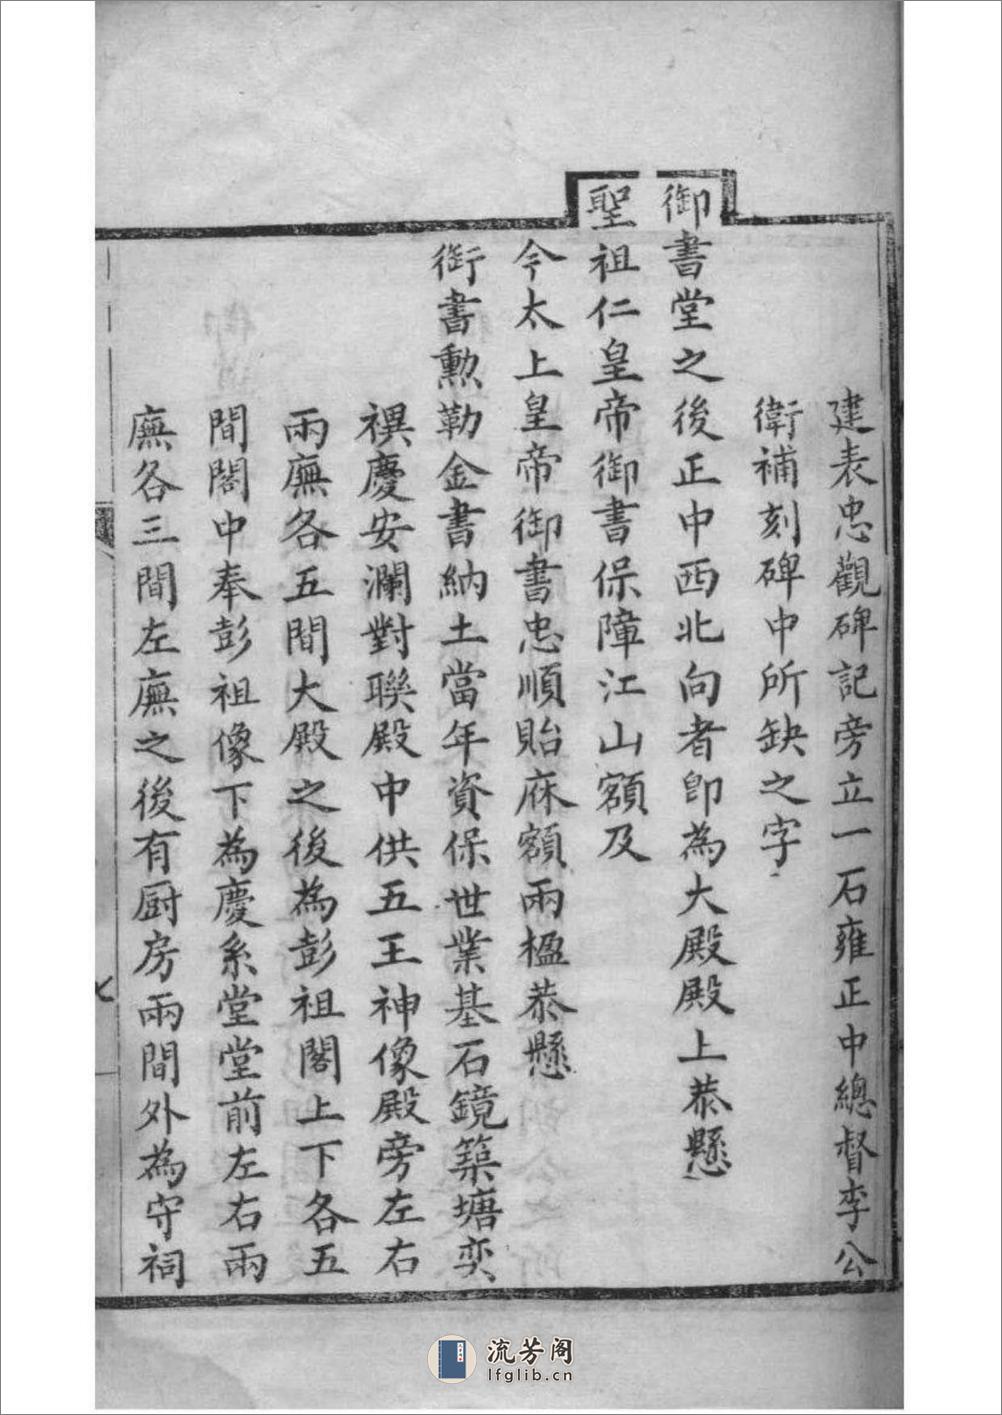 建表忠觀碑記旁立一石雍正中總督李公
衛補刻碑中所缺之字
御書堂之後正中西北向者卽為大殿殿上恭懸
聖祖仁皇帝御書保障江山額及
今太上皇帝御書忠順貽庥額兩楹恭懸
銜書勲勒金書納土當年資保世業基石鏡築塘奕
禩慶安瀾對聯殿中供五王神像殿旁左右
兩廡各五間大殿之後為彭祖閣上下各五
間閣中奉彭祖像下為慶系堂堂前左右兩
廡各三間左廡之後有厨房兩間外為守祠
流芳阁
lfglib.cn